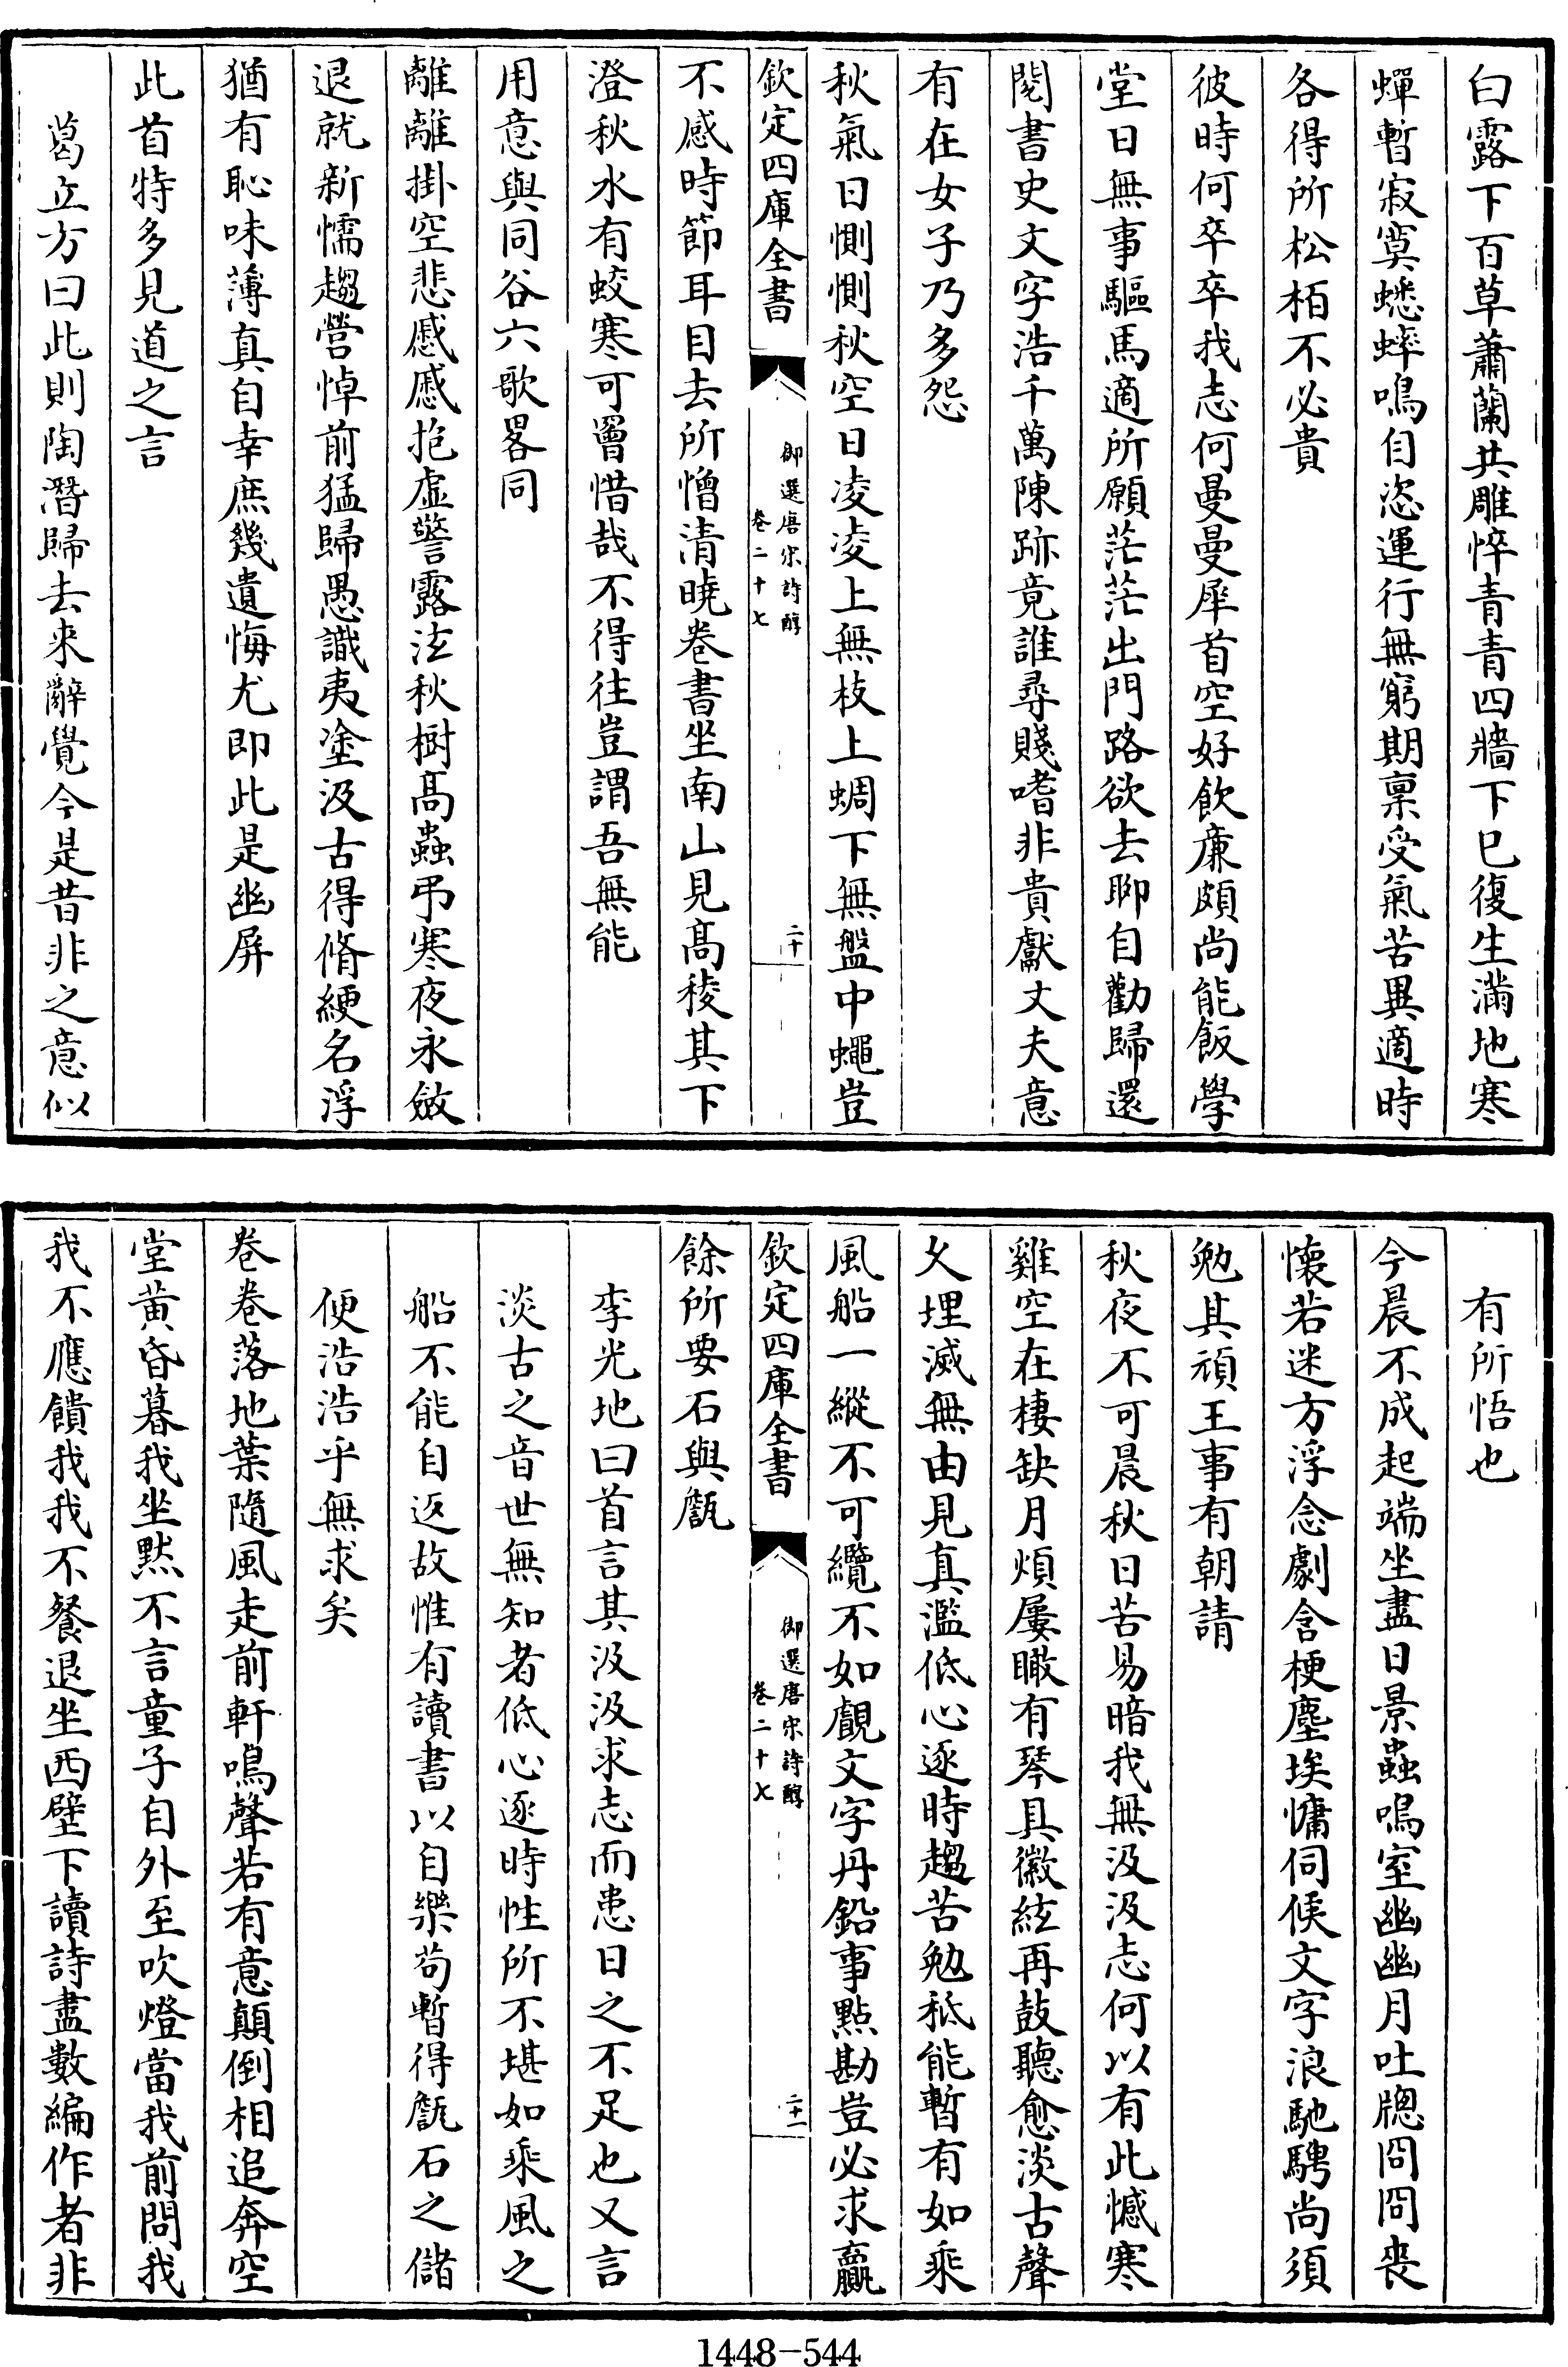 白露下百草蕭蘭共雕悴青青四牆下已復生滿地寒
蟬暫寂寞蟋蟀鳴自恣運行無窮期稟受氣苦異適時
各得所松栢不必貴
彼時何卒卒我志何曼曼犀首空好飲廉頗尚能飯學
堂日無事驅馬適所願茫茫出門路欲去聊自勸歸還
閱書史文字浩千萬陳跡竟誰尋賤嗜非貴獻丈夫意
有在女子乃多怨
秋氣日惻惻秋空日凌凌上無枝上蜩下無盤中蠅豈
欽定四庫全書
御選唐宋詩醇
卷二十七
二十
不感時節耳目去所憎清曉卷書坐南山見髙稜其下
澄秋水有蛟寒可罾惜哉不得往豈謂吾無能
用意與同谷六歌畧同
離離掛空悲慼慼抱虛警露泫秋樹髙蟲弔寒夜永斂
退就新懦趨營悼前猛歸愚識夷塗汲古得脩綆名浮
猶有恥味薄真自幸庶幾遺悔尤即此是幽屏
此首特多見道之言
葛立方曰此則陶潛歸去來辭覺今是昔非之意似
有所悟也
今晨不成起端坐盡日景蟲鳴室幽幽月吐牕冏冏喪
懷若迷方浮念劇含梗塵埃慵伺候文字浪馳騁尚須
勉其頑王事有朝請
秋夜不可晨秋日苦易暗我無汲汲志何以有此憾寒
雞空在棲缺月煩屢瞰有琴具徽絃再鼓聽愈淡古聲
乆埋滅無由見真濫低心逐時趨苦勉秪能暫有如乘
風船一縱不可纜不如覷文字丹鉛事點勘豈必求贏
欽定四庫全書
御選唐宋詩醇
卷二十七
二十一
餘所要石與甔
李光地曰首言其汲汲求志而患日之不足也又言
淡古之音世無知者低心逐時性所不堪如乘風之
船不能自返故惟有讀書以自樂茍暫得甔石之儲
便浩浩乎無求矣
卷卷落地葉隨風走前軒鳴聲若有意顛倒相追奔空
堂黃昏暮我坐黙不言童子自外至吹燈當我前問我
我不應饋我我不餐退坐西壁下讀詩盡數編作者非
1448-544